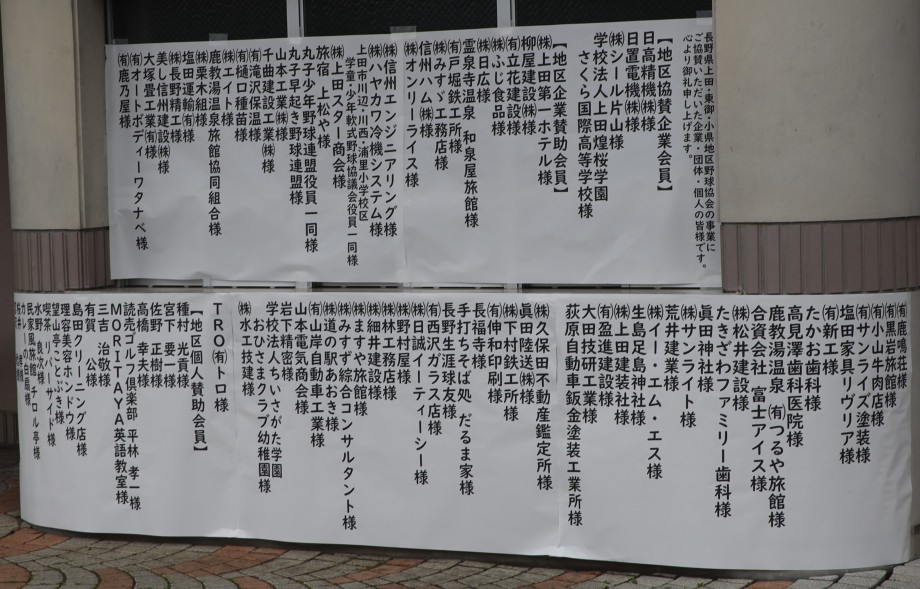 長野県上田・東御・小県地区野球協会の事業に
ご協賛いただいた企業・団体・個人の皆様です。
心より御礼申し上げます。
【地区協賛企業会員】
日高精機㈱様
日置電機㈱様
㈱シール片山様
学校法人上田煌桜学園
さくら国際高等学校様
【地区企業賛助会員】
㈱上田第一ホテル様
柳屋建設㈱様
㈲立花建設様
㈱ふじ食品様
㈱日広様
霊泉寺温泉 和泉屋旅館様
㈲戸堀鉄工所様
㈱みすゞ工務店様
信州ハム㈱様
㈱オンリーライス様
㈱信州エンジニアリング様
㈱ハヤカワ冷機システム様
上田市川辺・川西・浦里小学校区
学童・少年軟式野球協議会役員一同様
㈱上田スター商会様
旅宿 上松や様
丸子少年野球連盟役員一同様
丸子早起き野球連盟様
山本工業㈱様
千曲建設工業㈱様
㈲滝沢保温様
㈲樋口種苗様
㈱エイト様
鹿教湯温泉旅館協同組合様
㈱栗木組様
塩田運輸㈲様
㈱長野精工様
美し信州建設㈱様
大塚畳工業㈲様
㈲オートボディーワタナベ様
㈲鹿乃屋様
㈲鹿鳴荘様
㈲黒岩旅館様
㈲小山牛肉店様
㈲サンライズ塗装様
塩田家具リヴリア様
㈲新工様
たかお歯科様
高見澤歯科医院様
鹿教湯温泉 ㈲つるや旅館様
合資会社 富士アイス様
㈱松井建設様
たきざわファミリー歯科様
眞田神社様
㈱サンライト様
荒井建業様
㈱イー・エム・エス様
生島足島神社様
㈱上田建装社様
㈲盈進建設様
大田技研工業様
荻原自動車鈑金塗装工業所様
㈱久保田不動産鑑定所様
眞田陸送㈱様
㈱下村鉄工所様
㈲伸和印刷様
長福寺様
手打ちそば処 だるま家様
長野生涯球友様
㈲西沢ガラス店様
㈱日誠イーティーシー様
㈱野村屋様
㈱林工務店様
㈱ますや旅館様
㈱細井建設様
㈱みすず綜合コンサルタント様
㈱道の駅あおき様
㈲山岸自動車工業様
山本電気商会様
岩下精密様
学校法人ちいさがた学園
おひさまクラブ幼稚園様
㈱水工技建様
TRO㈲トロ様
【地区個人賛助会員】
種村 光貴様
宮下 要一様
佐野 正樹様
高橋 幸夫様
読売ゴルフ倶楽部 平林 孝一様
MORITAYA英語教室様
三吉 治敬様
有賀 公様
島田クリーニング店様
理容美容ホンドウ様
望山窯 みぶき様
喫茶 リバーサイド様
水野 良次様
民家風旅館 チロル亭様
カレーの白亜様